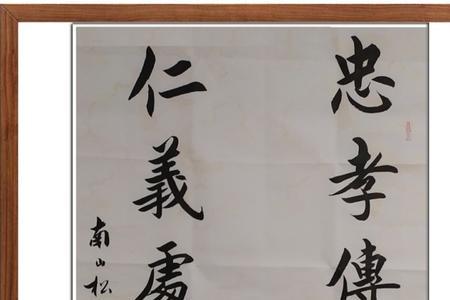 忠孝傳
仁義處
南山松